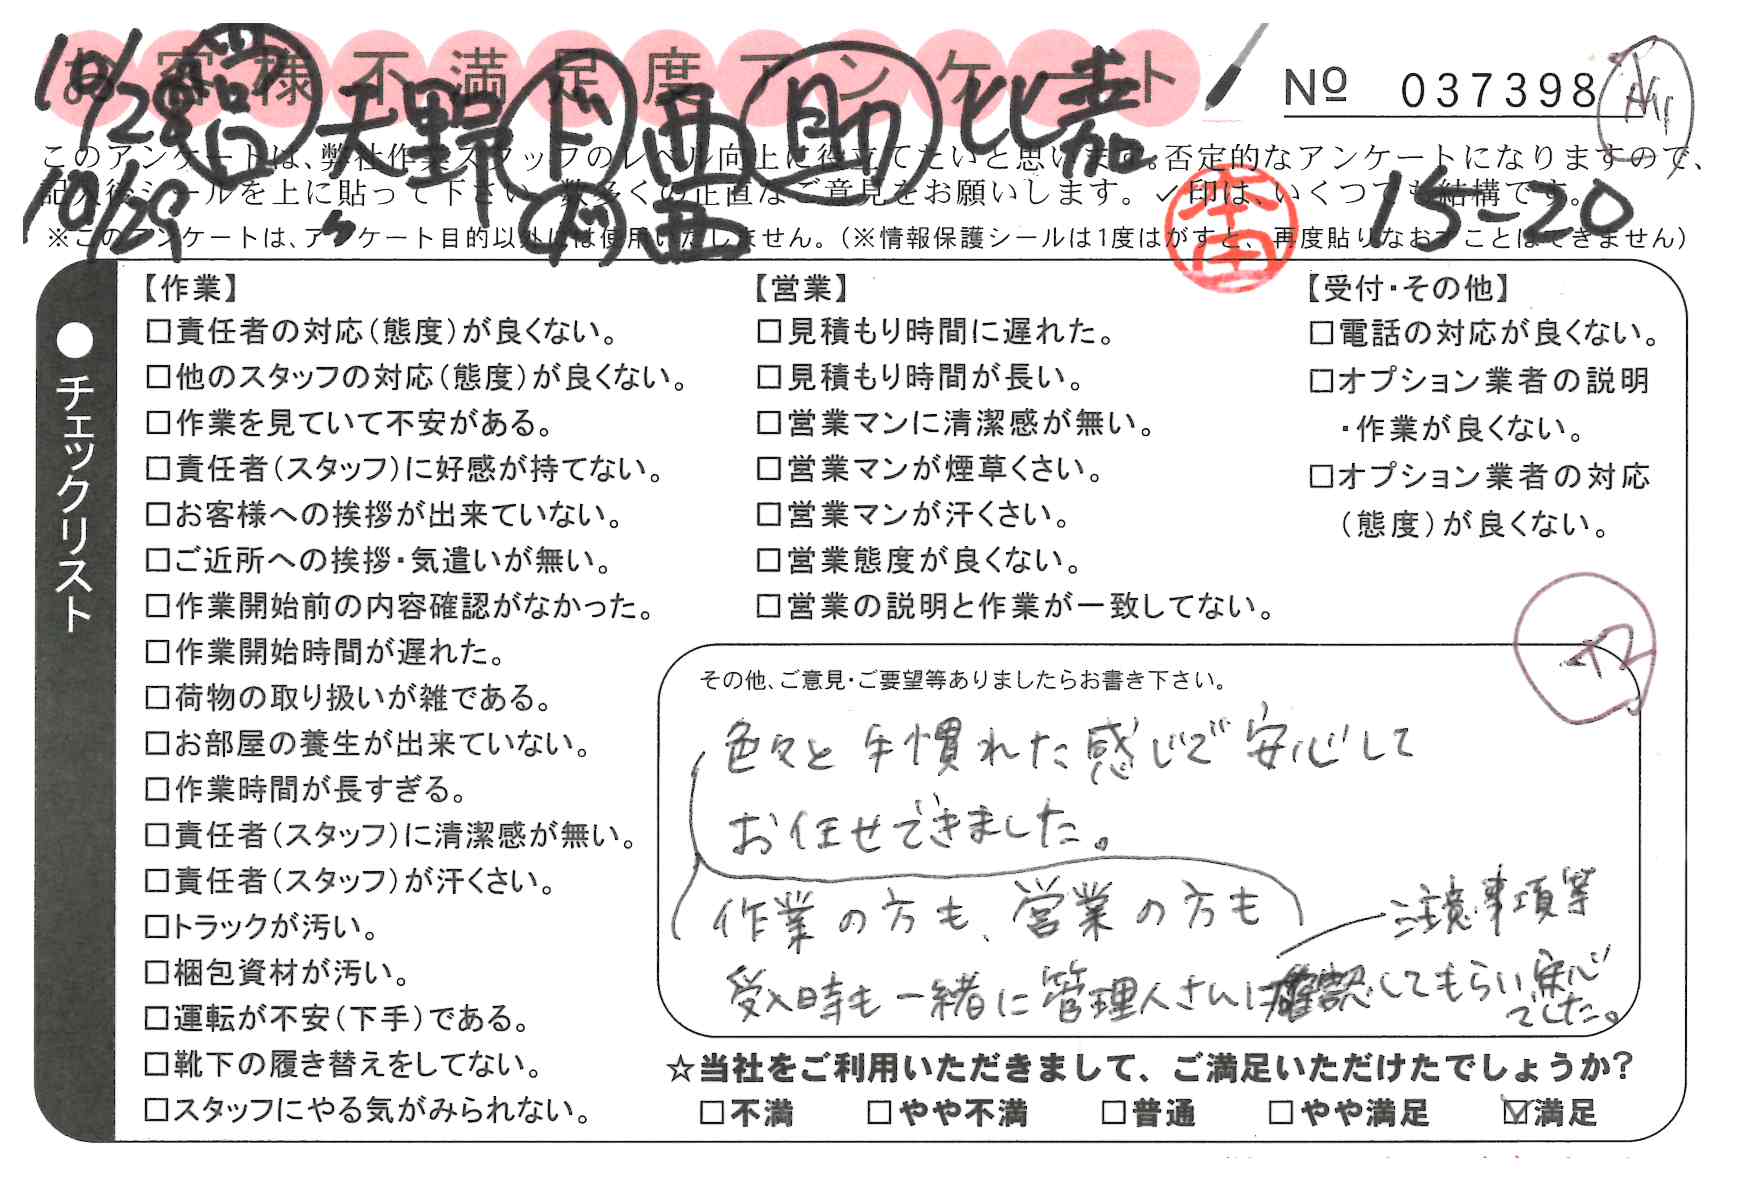 お客様不満足度アンケート
№ 037398
10/28 営 天野 ド 西 助 比嘉
10/29 〃 ド 西 15-20
このアンケートは、弊社作業スタッフのレベル向上に役立てたいと思います。否定的なアンケートになりますので、
記入後シールを上に貼って下さい。数多くの正直なご意見をお願いします。✓印は、いくつでも結構です。
※このアンケートは、アンケート目的以外には使用いたしません。(※情報保護シールは1度はがすと、再度貼りなおすことはできません)
●チェックリスト
【作業】
□責任者の対応(態度)が良くない。
□他のスタッフの対応(態度)が良くない。
□作業を見ていて不安がある。
□責任者(スタッフ)に好感が持てない。
□お客様への挨拶が出来ていない。
□ご近所への挨拶・気遣いが無い。
□作業開始前の内容確認がなかった。
□作業開始時間が遅れた。
□荷物の取り扱いが雑である。
□お部屋の養生が出来ていない。
□作業時間が長すぎる。
□責任者(スタッフ)に清潔感が無い。
□責任者(スタッフ)が汗くさい。
□トラックが汚い。
□梱包資材が汚い。
□運転が不安(下手)である。
□靴下の履き替えをしてない。
□スタッフにやる気がみられない。
【営業】
□見積もり時間に遅れた。
□見積もり時間が長い。
□営業マンに清潔感が無い。
□営業マンが煙草くさい。
□営業マンが汗くさい。
□営業態度が良くない。
□営業の説明と作業が一致してない。
【受付・その他】
□電話の対応が良くない。
□オプション業者の説明
・作業が良くない。
□オプション業者の対応
(態度)が良くない。
その他、ご意見・ご要望等ありましたらお書き下さい。
色々と手慣れた感じで安心して
お任せできました。
作業の方も、営業の方も
注意事項等
受入時も一緒に管理人さんに確認してもらい安心
でした。
☆当社をご利用いただきまして、ご満足いただけたでしょうか?
□不満 □やや不満 □普通 □やや満足 ☑満足